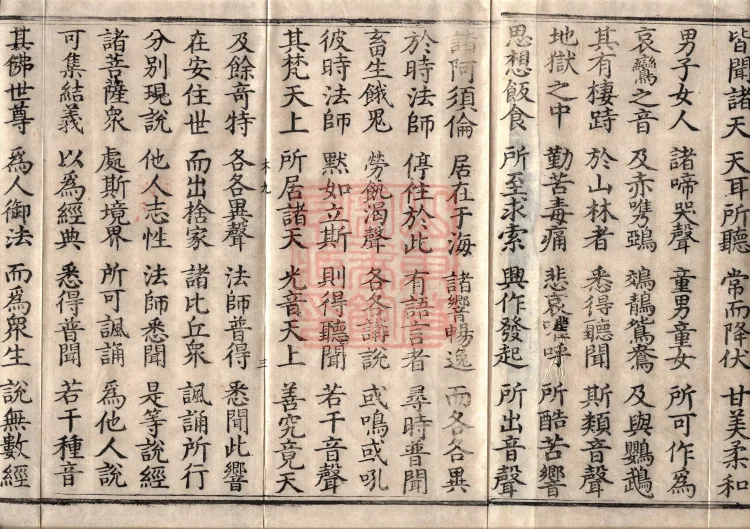 皆聞諸天　天耳所聽　常而降伏　甘美柔和
男子女人　諸啼哭聲　童男童女　所可作為
哀鸞之音　及赤嘴鵄　鵁鶄鴛鴦　及與鸚鵡
其有棲跱　於山林者　悉得聽聞　斯類音聲
地獄之中　勤苦毒痛　悲哀嘷呼　所酷苦響
思想飯食　所至求索　興作發起　所出音聲
諸阿須倫　居在于海　諸響暢逸　而各各異
於時法師　停住於此　有語言者　尋時普聞
畜生餓鬼　勞飢渴聲　各各講說　或鳴或吼
彼時法師　默如立斯　則得聽聞　若干音聲
其梵天上　所居諸天　光音天上　善究竟天
及餘奇特　各各異聲　法師普得　悉聞此響
在安住世　而出捨家　諸比丘眾　諷誦所行
分別現說　他人志性　法師悉聞　是等說經
諸菩薩眾　處斯境界　所可諷誦　為他人說
可集結義　以為經典　悉得普聞　若干種音
其佛世尊　為人御法　而為眾生　說無數經